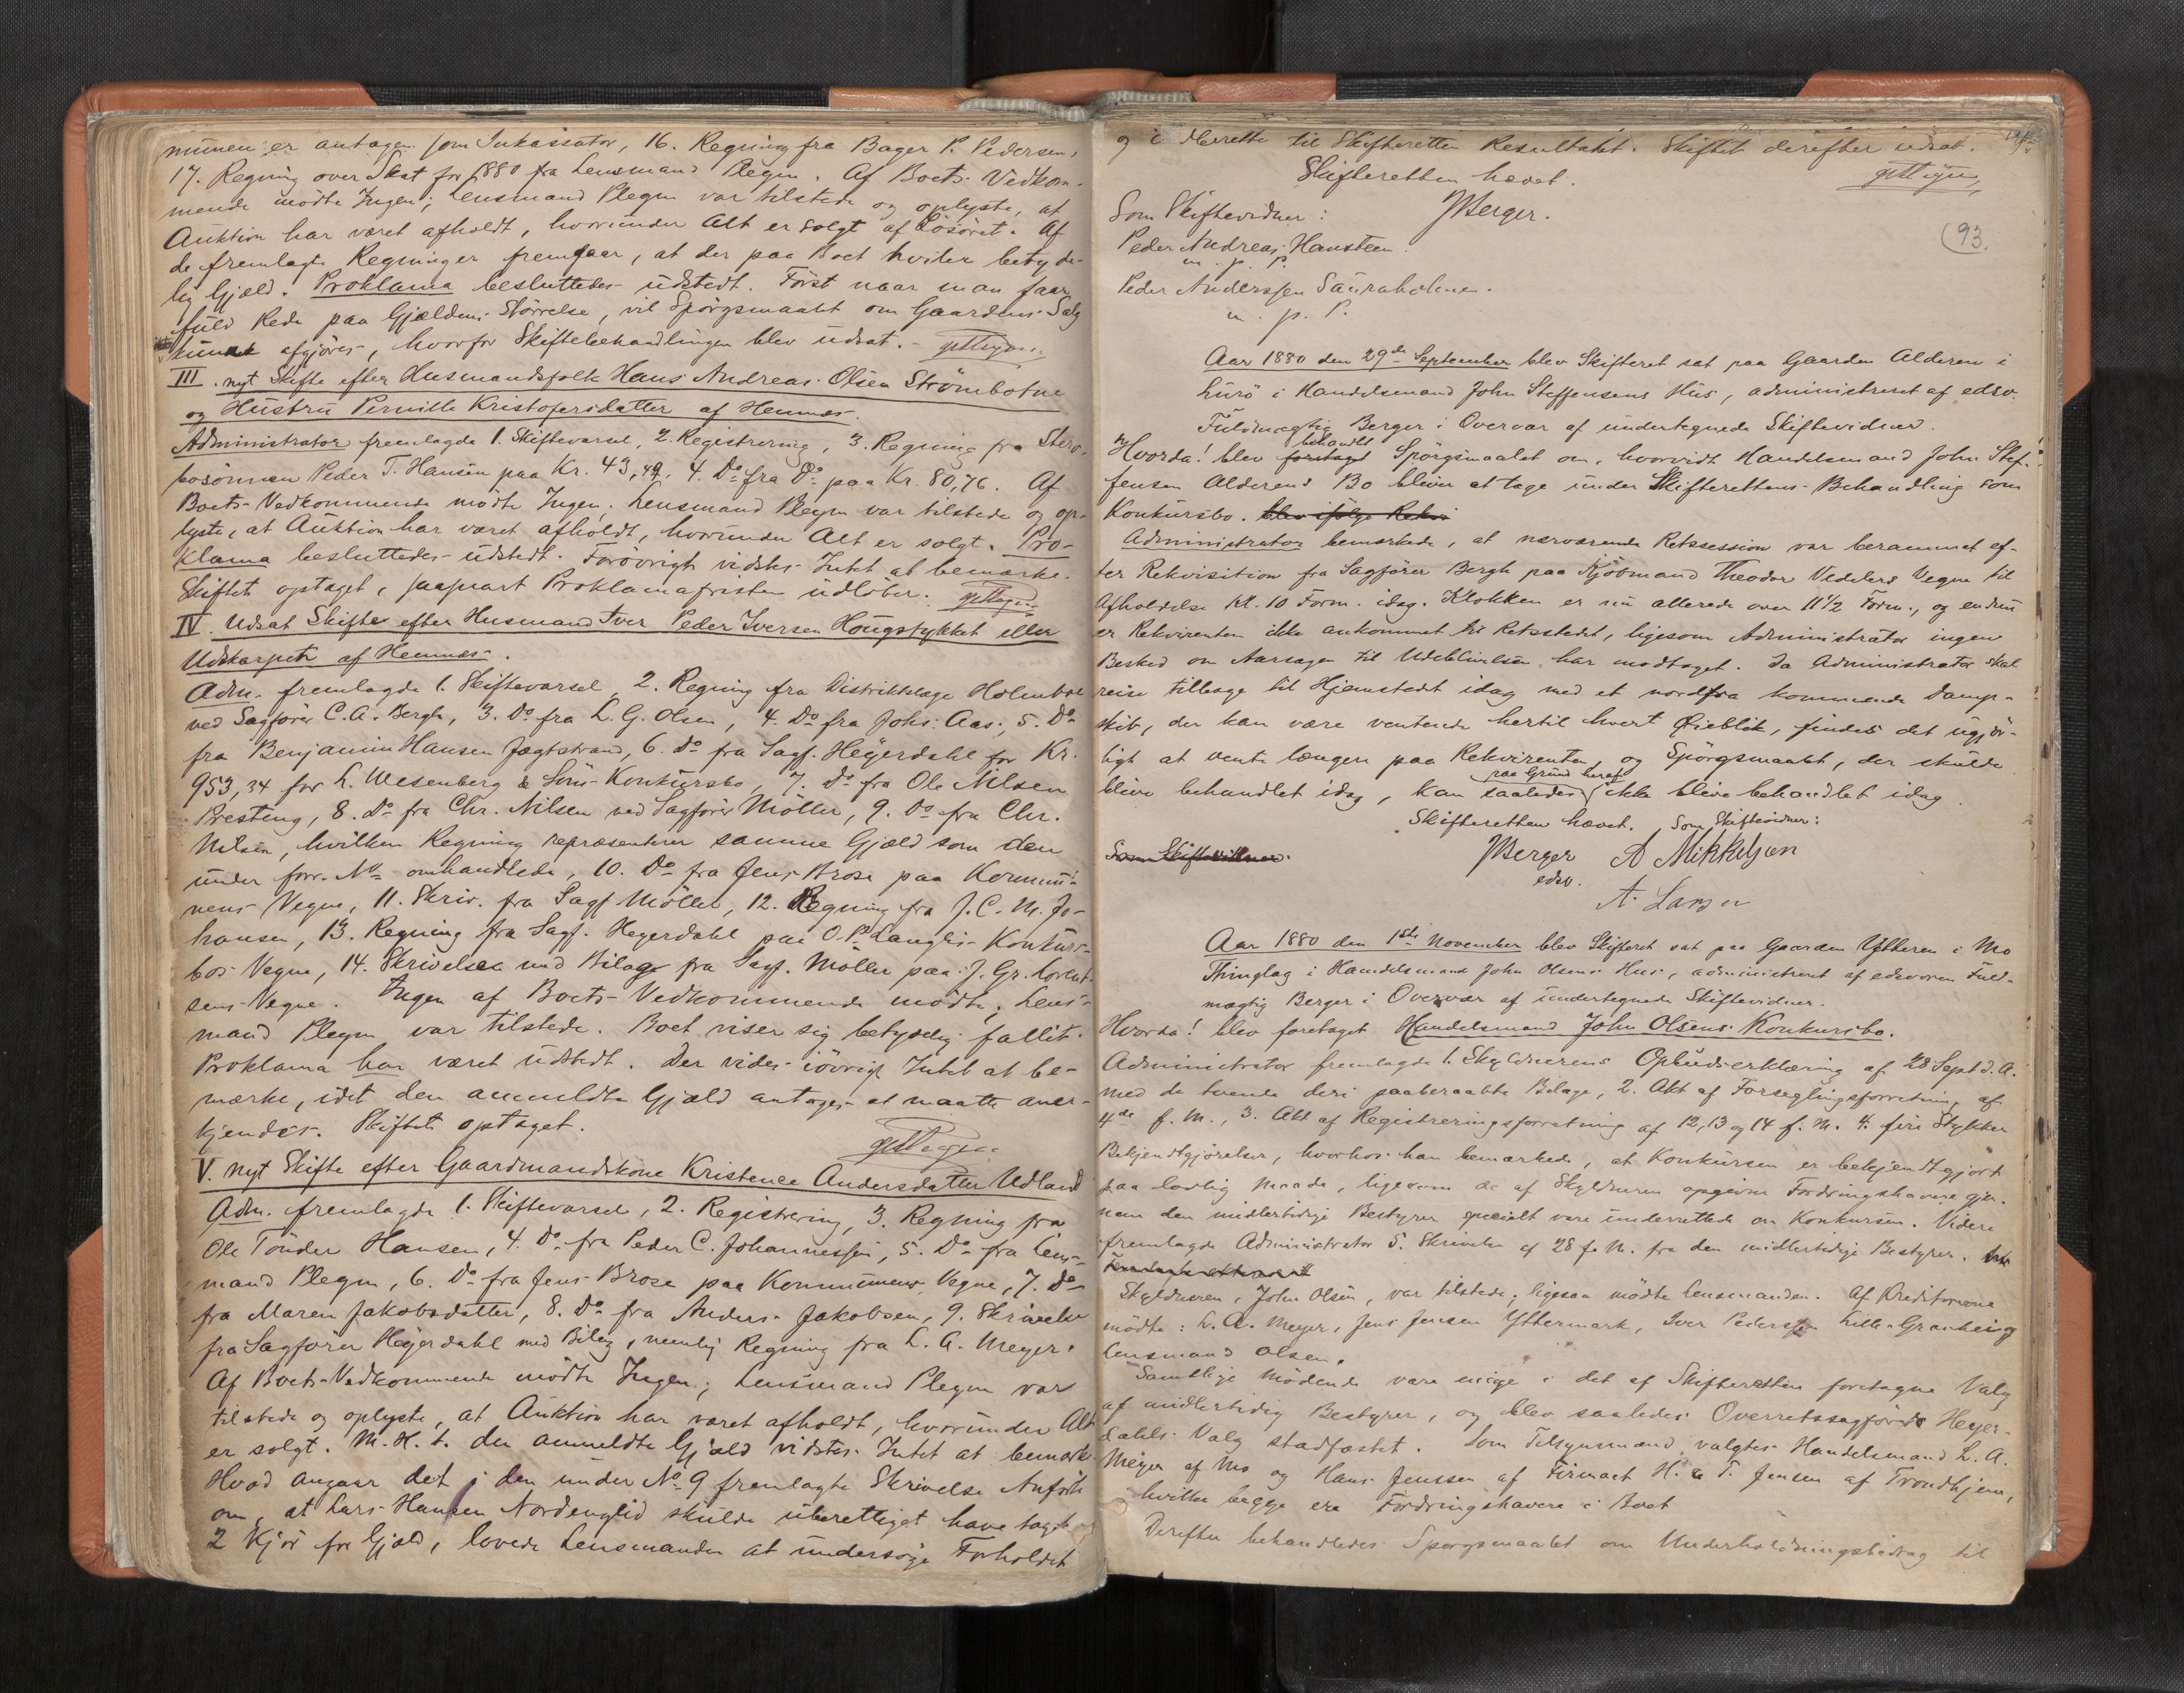 munen er antagen som Inkassator, 16. Regning fra Bager P. Pedersen,
17. Regning over Skat for 1880 fra Lensmand Plegen. Af Boets Vedkom-
mende mødte Ingen; Lensmand Plegen var tilstede og oplyste, at
Auktion har været afholdt, hvorunder Alt er solgt af Løsøret. Af
de fremlagte Regninger fremgaar, at der paa Boet hviler betyde-
lig Gjæld. Proklama besluttedes udstedt. Først naar man faar
fuld Rede paa Gjældens Størrelse, vil Spørgsmaalet om Gaardens Salg
kunne afgjøres, hvorfor Skiftebehandlingen blev udsat.
III. nyt Skifte efter Husmandsfolk Hans Andreas Olsen Strømbotne
og Hustru Pernille Kristofersdatter af Hemnæs.
Administrator fremlagde 1. Skiftevarsel, 2. Registrering, 3. Regning fra Stær-
bosønnen Peder T. Hansen paa Kr. 43,49, 4. Do fra Do paa Kr. 80,76. Af
Boets Vedkommende mødte Ingen. Lensmand Plegen var tilstede og op-
lyste, at Auktion har været afholdt, hvorunder Alt er solgt. Pro-
klama besluttedes udstedt. Forøvrigt vidstes Intet at bemærke.
Skiftet optaget, saasnart Proklamafristen udløber.
IV. Udsat Skifte efter Husmand Iver Peder Iversen Hougstykket eller
Udskarpen af Hemnæs.
Adm. fremlagde 1. Skiftevarsel, 2. Regning fra Distriktslæge Holmboe
ved Sagfører C. A. Bergh, 3. Do fra L. G. Olsen, 4. Do fra Johs. Aas, 5. Do
fra Benjamin Hansen Jægtstrand, 6. Do fra Sagf. Heyerdahl for Kr.
953,34 for L. Wesenberg & Søns Konkursbo, 7. Do fra Ole Nilsen
Presteng, 8. Do fra Chr. Nilsen ved Sagfører Møller, 9. Do fra Chr.
Nilsen, hvilken Regning repræsenterer samme Gjæld som den
under forr. No omhandlede, 10. Do fra Jens Brose paa Kommu-
nens Vegne, 11. Skriv. fra Sagf Møller, 12. Regning fra J. C. M. Jo-
hansen, 13. Regning fra Sagf. Heyerdahl paa O. P. Langlis Konkurs-
bos Vegne, 14. Skrivelse med Bilage fra Sagf. Møller paa J. Gr. Lorent-
sens Vegne. Ingen af Boets Vedkommende mødte. Lens-
mand Plegen var tilstede. Boet viser sig betydelig fallit.
Proklama har været udstedt. Der vides iøvrigt Intet at be-
mærke, idet den anmeldte Gjæld antages at maatte aner-
kjendes. Skiftet optaget.
V. nyt Skifte efter Gaardmandskone Kristence Andersdatter Udland
Adm. fremlagde 1. Skiftevarsel, 2. Registrering, 3. Regning fra
Ole Tønder Hansen, 4. Do fra Peder C. Johannessen, 5. Do fra Lens-
mand Plegen, 6. Do fra Jens Brose paa Kommunens Vegne, 7. Do
fra Maren Jakobsdatter, 8. Do fra Anders Jakobsen, 9. Skrivelse
fra Sagfører Heyerdahl med Bilag, nemlig Regning fra L. A. Meyer.
Af Boets Vedkommende mødte Ingen; Lensmand Plegen var
tilstede og oplyste, at Auktion har været afholdt, hvorunder Alt
er solgt. M. H. t. den anmeldte Gjæld vidstes Intet at bemærke.
Hvad angaar det i den under No 9 fremlagte Skrivelse Anførte
om, at Lars Hansen Nordenglid skulde uberettiget have taget
2 Kjør for Gjæld, lovede Lensmanden at undersøge Forholdet
og i Merette til Skifteretten Resultatet. Skiftet derefter udsat.
Skifteretten hævet.
JBerger.
Som Skiftevidner:
Peder Andreas Hansteen
m. p. P.
93.
Peder Anderssen Sauraholmen.
m. p. P.
Aar 1880 den 29de September blev Skifteret sat paa Gaarden Alderen i
Lurø i Handelsmand John Steffensens Hus, administreret af edsv.
Fuldmægtig Berger i Overvær af undertegnede Skiftevidner.
Hvorda! blev foretaget behandlet Spørgsmaalet om, hvorvidt Handelsmand John Stef-
fensen Alderens Bo bliver at tage under Skifterettens Behandling som
Konkursbo. blev ifølge Rekvi
Administrator bemærkede, at nærværende Retssession var berammet ef-
ter Rekvisition fra Sagfører Bergh paa Kjøbmand Theodor Vedelers Vegne til
Afholdelse Kl. 10 Form. idag. Klokken er nu allerede over 11 1/2 Form., og endnu
er Rekvirenten ikke ankommet til Retsstedet, ligesom Administrator ingen
Besked om Aarsagen til Udeblivelsen har modtaget. Da Administrator skal
reise tilbage til Hjemstedet idag med et nordfra kommende Damp-
skib, der kan være ventende hertil hvert Øieblik, findes det ugjør-
ligt at vente længere paa Rekvirenten, og Spørgsmaalet, der skulde
blive behandlet idag, kan saaledes paa Grund heraf ikke blive behandlet idag.
Skifteretten hævet. Som Skiftevidner:
Som Skiftevidner: JBerger A Mikkelsen
edsv.
A. Larsen
Aar 1880 den 1ste November blev Skifteret sat paa Gaarden Ytteren i Mo
Thinglag i Handelsmand John Olsens Hus, administreret af edsvoren Fuld-
mægtig Berger i Overvær af undertegnede Skiftevidner.
Hvorda! blev foretaget Handelsmand John Olsens Konkursbo.
Administrator fremlagde 1. Skyldnerens Opbudserklæring af 28 Sept d. A.
med de tvende deri paaberaabte Bilage, 2. Akt af Forseglingsforretning af
4de f. M., 3. Akt af Registreringsforretning af 12, 13 og 14 f. M. 4. fire Stykker
Bekjendtgjørelser, hvorhos han bemærkede, at Konkursen er bekjendtgjort
paa lovlig Maade, ligesom de af Skyldneren opgivne Fordringshavere gjen-
nem den midlertidige Bestyrer specielt vare underrettede om Konkursen. Videre
fremlagde Administrator 5. Skrivelse af 28 f. M. fra den midlertidige Bestyrer.
Skyldneren, John Olsen, var tilstede; ligesaa mødte Lensmanden. Af Kreditorerne
mødte: L. A. Meyer, Jens Jensen Yttermark, Iver Pederssen Lille-Gronhei og
Lensmand Olsen.
Samtlige Mødende vare enige i det af Skifteretten foretagne Valg
af midlertidig Bestyrer, og blev saaledes Overretssagfører Heyer-
dahls Valg stadfæstet. Som Tilsynsmænd valgtes Handelsmand L. A.
Meyer af Mo og Hans Jenssen af Firmaet H. & T. Jensen af Trondhjem,
hvilke begge ere Fordringshavere i Boet
Derefter behandledes Spørgsmaalet om Underholdningsbidrag til